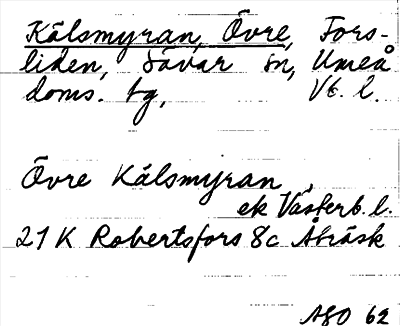 Kälsmyran, Övre, Fors-
liden, Sävar sn, Umeå
doms. tg, Vb. l.
Övre Kälsmyran
ek Västerb. l.
21 K Robertsfors 8c Åträsk
ASO 62